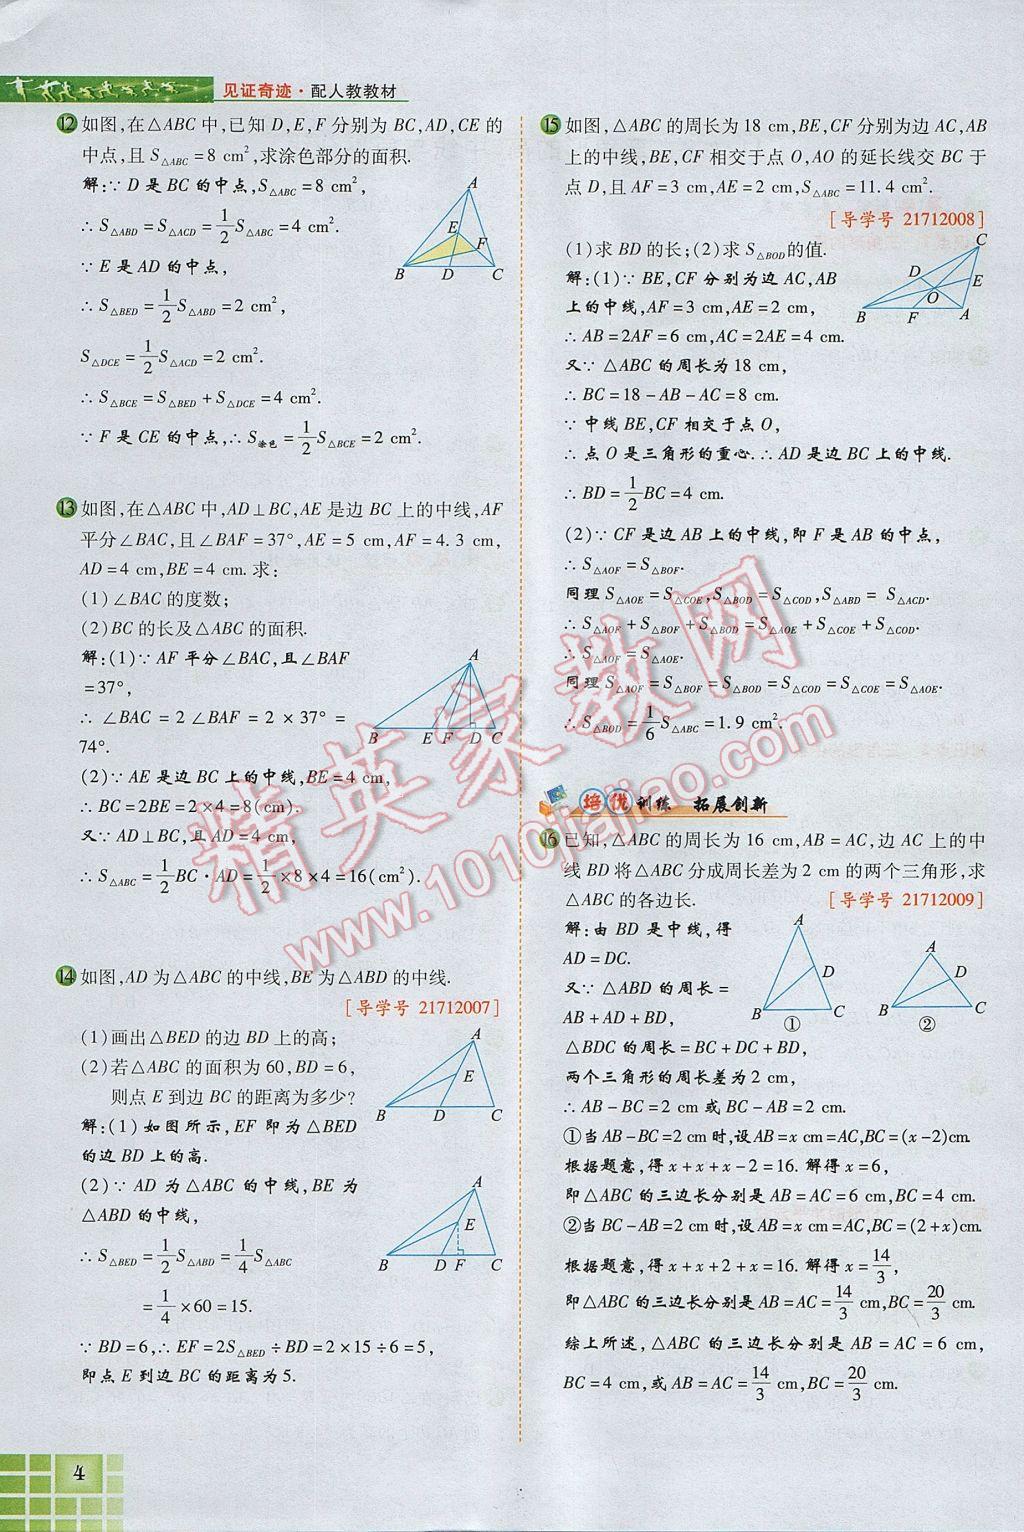 见证奇迹·配人教教材
12 如图,在△ABC中,已知D,E,F分别为BC,AD,CE的
中点,且S△ABC=8 cm²,求涂色部分的面积.
解:∵D是BC的中点,S△ABC=8 cm²,
∴S△ABD=S△ACD=1/2S△ABC=4 cm².
∵E是AD的中点,
∴S△BED=1/2S△ABD=2 cm²,
S△DCE=1/2S△ACD=2 cm².
∴S△BCE=S△BED+S△DCE=4 cm².
∵F是CE的中点,∴S涂色=1/2S△BCE=2 cm².
A
E
F
B D C
13 如图,在△ABC中,AD⊥BC,AE是边BC上的中线,AF
平分∠BAC,且∠BAF=37°,AE=5 cm,AF=4.3 cm,
AD=4 cm,BE=4 cm.求:
(1)∠BAC的度数;
(2)BC的长及△ABC的面积.
解:(1)∵AF平分∠BAC,且∠BAF
=37°,
∴∠BAC=2∠BAF=2×37°=
74°.
(2)∵AE是边BC上的中线,BE=4 cm,
∴BC=2BE=2×4=8(cm).
又∵AD⊥BC,且AD=4 cm,
∴S△ABC=1/2BC·AD=1/2×8×4=16(cm²).
A
B E F D C
14 如图,AD为△ABC的中线,BE为△ABD的中线.
[导学号 21712007]
(1)画出△BED的边BD上的高;
(2)若△ABC的面积为60,BD=6,
则点E到边BC的距离为多少?
解:(1)如图所示,EF即为△BED
的边BD上的高.
(2)∵AD为△ABC的中线,BE为
△ABD的中线,
∴S△BED=1/2S△ABD=1/4S△ABC
=1/4×60=15.
∵BD=6,∴EF=2S△BED÷BD=2×15÷6=5,
即点E到边BC的距离为5.
A
E
B D C
A
E
B D F C
15 如图,△ABC的周长为18 cm,BE,CF分别为边AC,AB
上的中线,BE,CF相交于点O,AO的延长线交BC于
点D,且AF=3 cm,AE=2 cm,S△ABC=11.4 cm².
[导学号 21712008]
(1)求BD的长;(2)求S△BOD的值.
解:(1)∵BE,CF分别为边AC,AB
上的中线,AF=3 cm,AE=2 cm,
∴AB=2AF=6 cm,AC=2AE=4 cm.
又∵△ABC的周长为18 cm,
∴BC=18-AB-AC=8 cm.
∵中线BE,CF相交于点O,
∴点O是三角形的重心.∴AD是边BC上的中线.
∴BD=1/2BC=4 cm.
(2)∵CF是边AB上的中线,即F是AB的中点,
∴S△AOF=S△BOF.
同理S△AOE=S△COE,S△BOD=S△COD,S△ABD=S△ACD.
∴S△AOF+S△BOF+S△BOD=S△AOE+S△COE+S△COD.
∴S△AOF=S△AOE.
同理S△AOF=S△BOF=S△BOD=S△COD=S△COE=S△AOE.
∴S△BOD=1/6S△ABC=1.9 cm².
C
D E
O
B F A
培优训练 拓展创新
16 已知,△ABC的周长为16 cm,AB=AC,边AC上的中
线BD将△ABC分成周长差为2 cm的两个三角形,求
△ABC的各边长.
[导学号 21712009]
解:由BD是中线,得
AD=DC.
又∵△ABD的周长=
AB+AD+BD,
△BDC的周长=BC+DC+BD,
两个三角形的周长差为2 cm,
∴AB-BC=2 cm或BC-AB=2 cm.
①当AB-BC=2 cm时,设AB=x cm=AC,BC=(x-2)cm.
根据题意,得x+x+x-2=16.解得x=6,
即△ABC的三边长分别是AB=AC=6 cm,BC=4 cm.
②当BC-AB=2 cm时,设AB=x cm=AC,BC=(2+x)cm.
根据题意,得x+x+2+x=16.解得x=14/3,
即△ABC的三边长分别是AB=AC=14/3 cm,BC=20/3 cm.
综上所述,△ABC的三边长分别是AB=AC=6 cm,
BC=4 cm,或AB=AC=14/3 cm,BC=20/3 cm.
A
D
B C
①
A
D
B C
②
精英家教网
www.1010jiajiao.com
4